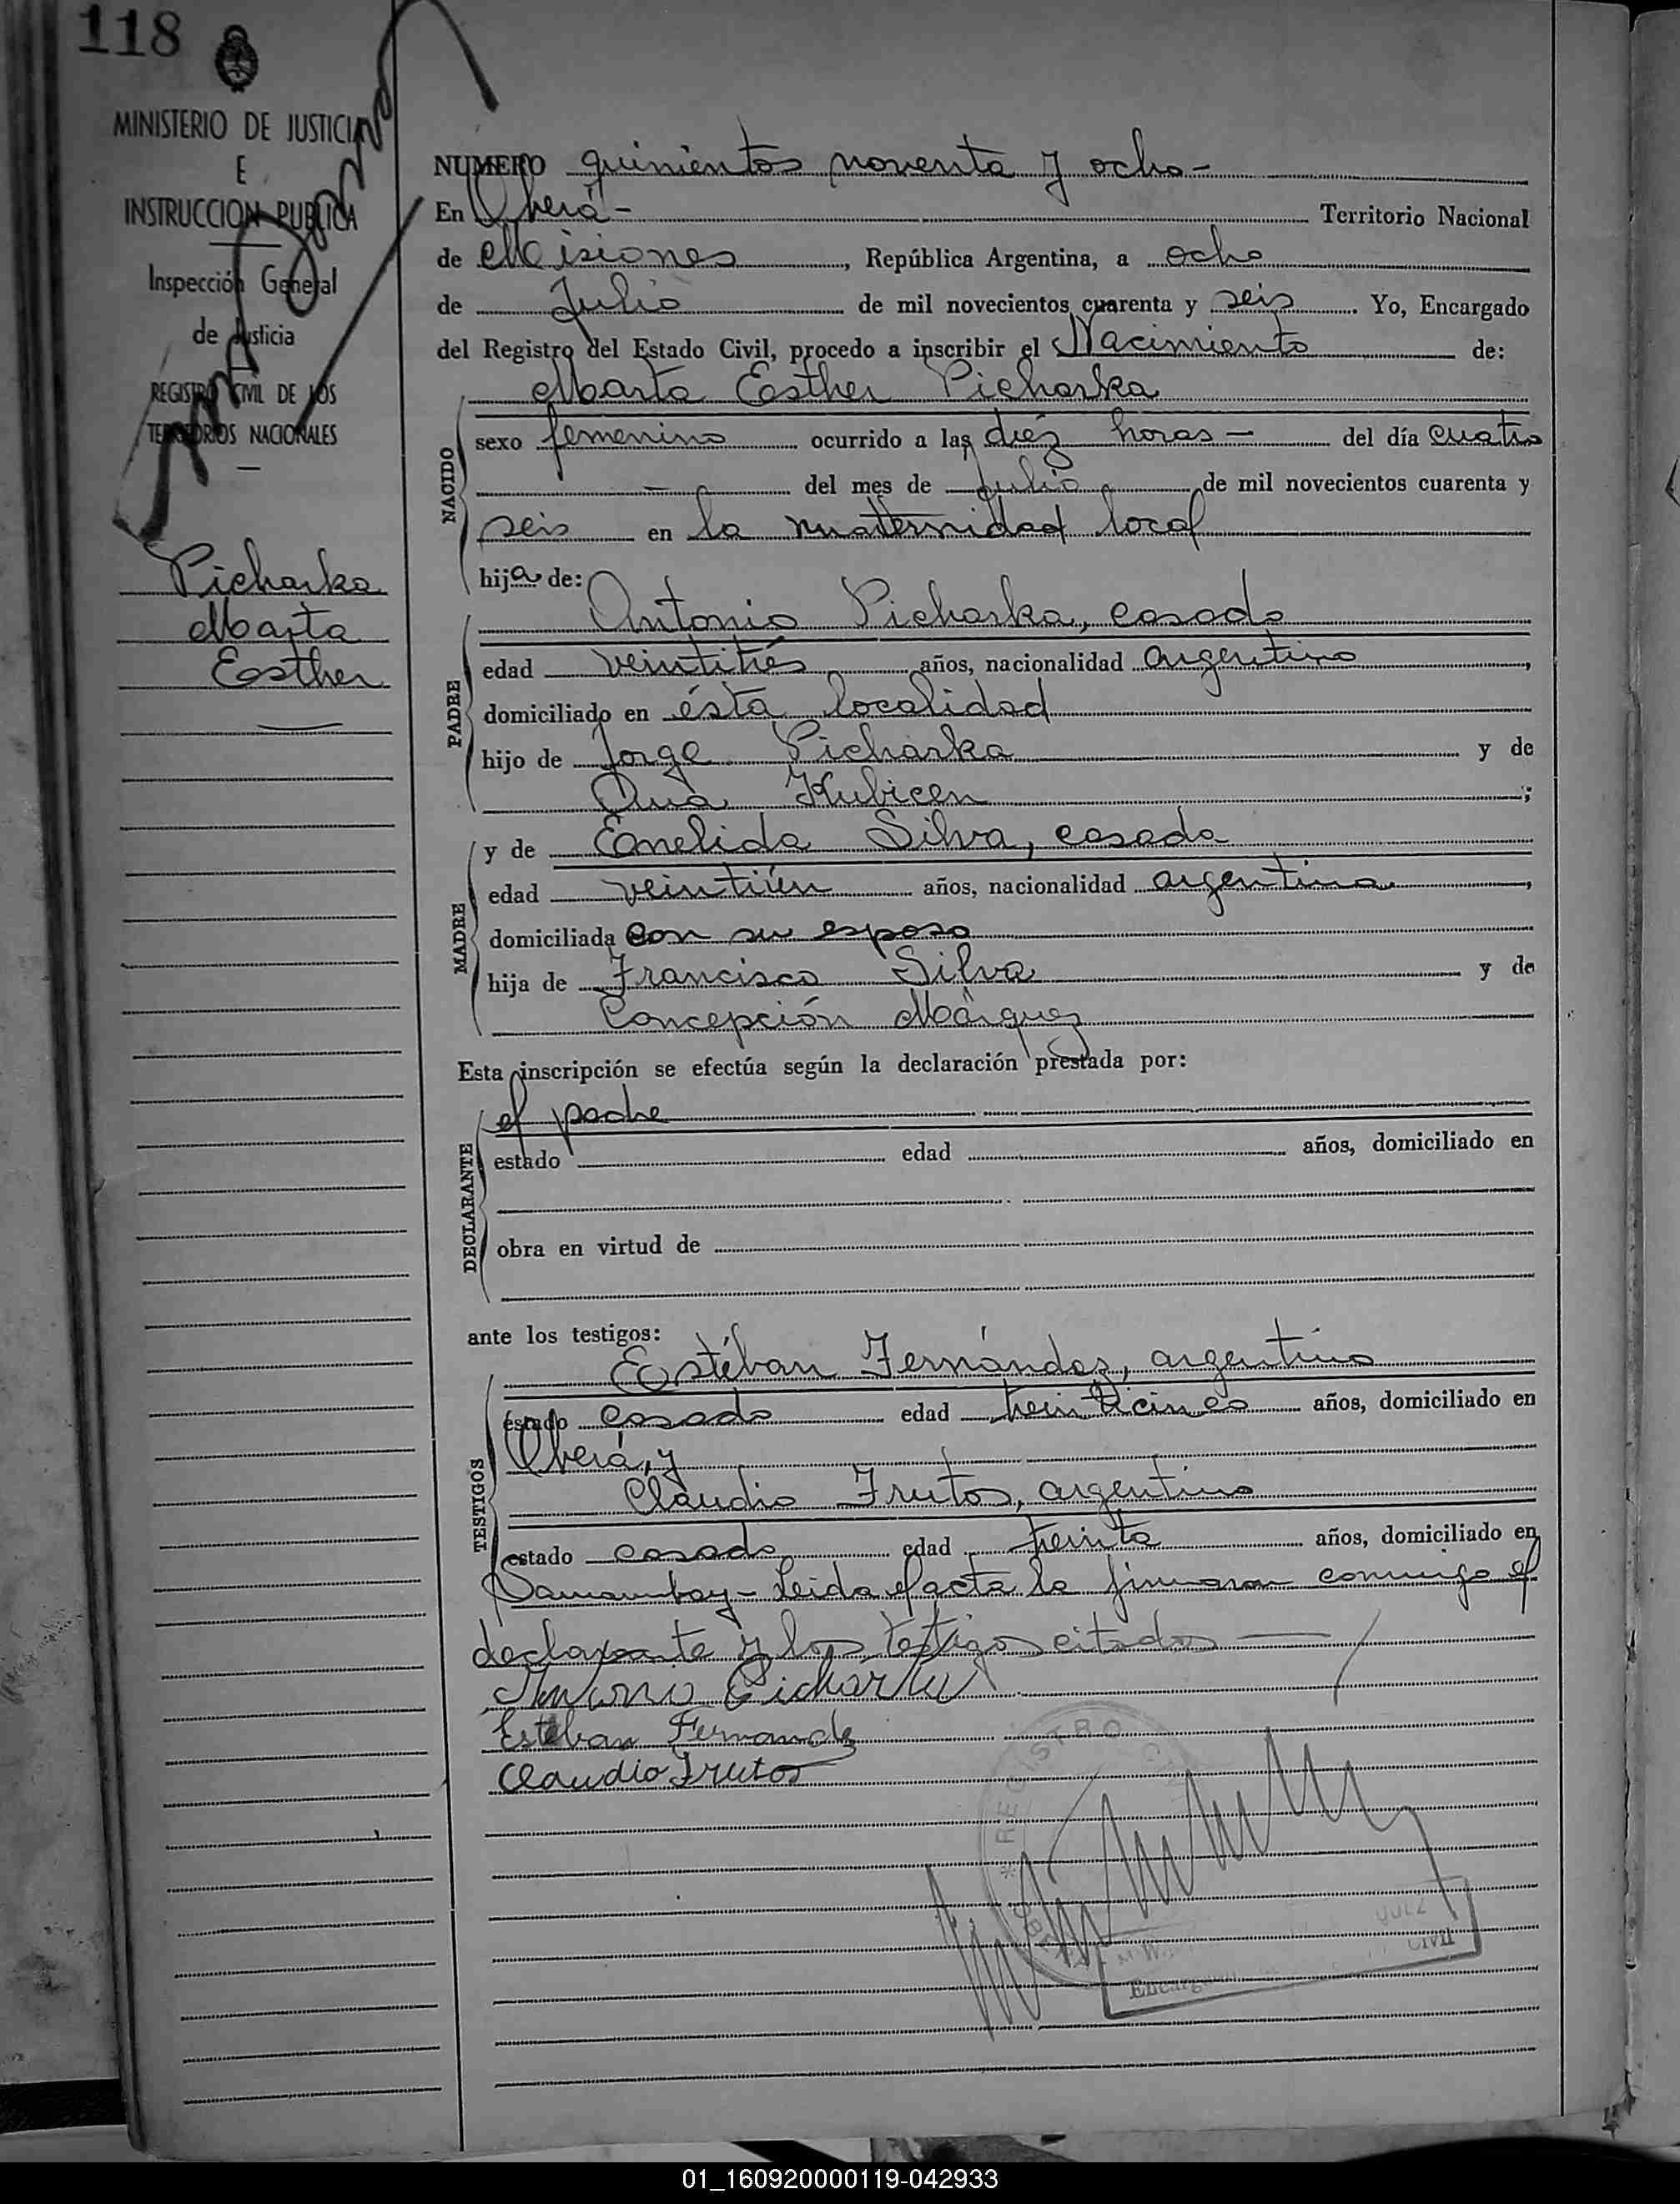 118
MINISTERIO DE JUSTICIA
E
INSTRUCCION PUBLICA
Inspección General
de Justicia
REGISTRO CIVIL DE LOS
TERRITORIOS NACIONALES
Picharka
Marta
Esther
NUMERO quinientos noventa y ocho-
En Oberá- Territorio Nacional
de Misiones, República Argentina, a ocho
de Julio de mil novecientos cuarenta y seis. Yo, Encargado
del Registro del Estado Civil, procedo a inscribir el Nacimiento de:
Marta Esther Picharka
NACIDO
sexo femenino ocurrido a las diéz horas- del día cuatro
- del mes de julio de mil novecientos cuarenta y
seis en la maternidad local
hija de:
PADRE
Antonio Picharka, casado
edad veintitrés años, nacionalidad argentino,
domiciliado en ésta localidad
hijo de Jorge Picharka y de
Ana Kubicen;
MADRE
y de Emelida Silva, casada
edad veintiún años, nacionalidad argentina,
domiciliada con su esposo
hija de Francisco Silva y de
Concepción Márquez
Esta inscripción se efectúa según la declaración prestada por:
DECLARANTE
el padre
estado edad años, domiciliado en
obra en virtud de
ante los testigos:
TESTIGOS
Estéban Fernández, argentino
estado casado edad treinticinco años, domiciliado en
Oberá, y
Claudio Frutos, argentino
estado casado edad treinta años, domiciliado en
Samambay- Leida el acta la firmaron conmigo el
declarante y los testigos citados
Antonio Picharka
Esteban Fernandez
Claudio Frutos
REGISTRO
CIVIL
01_160920000119-042933